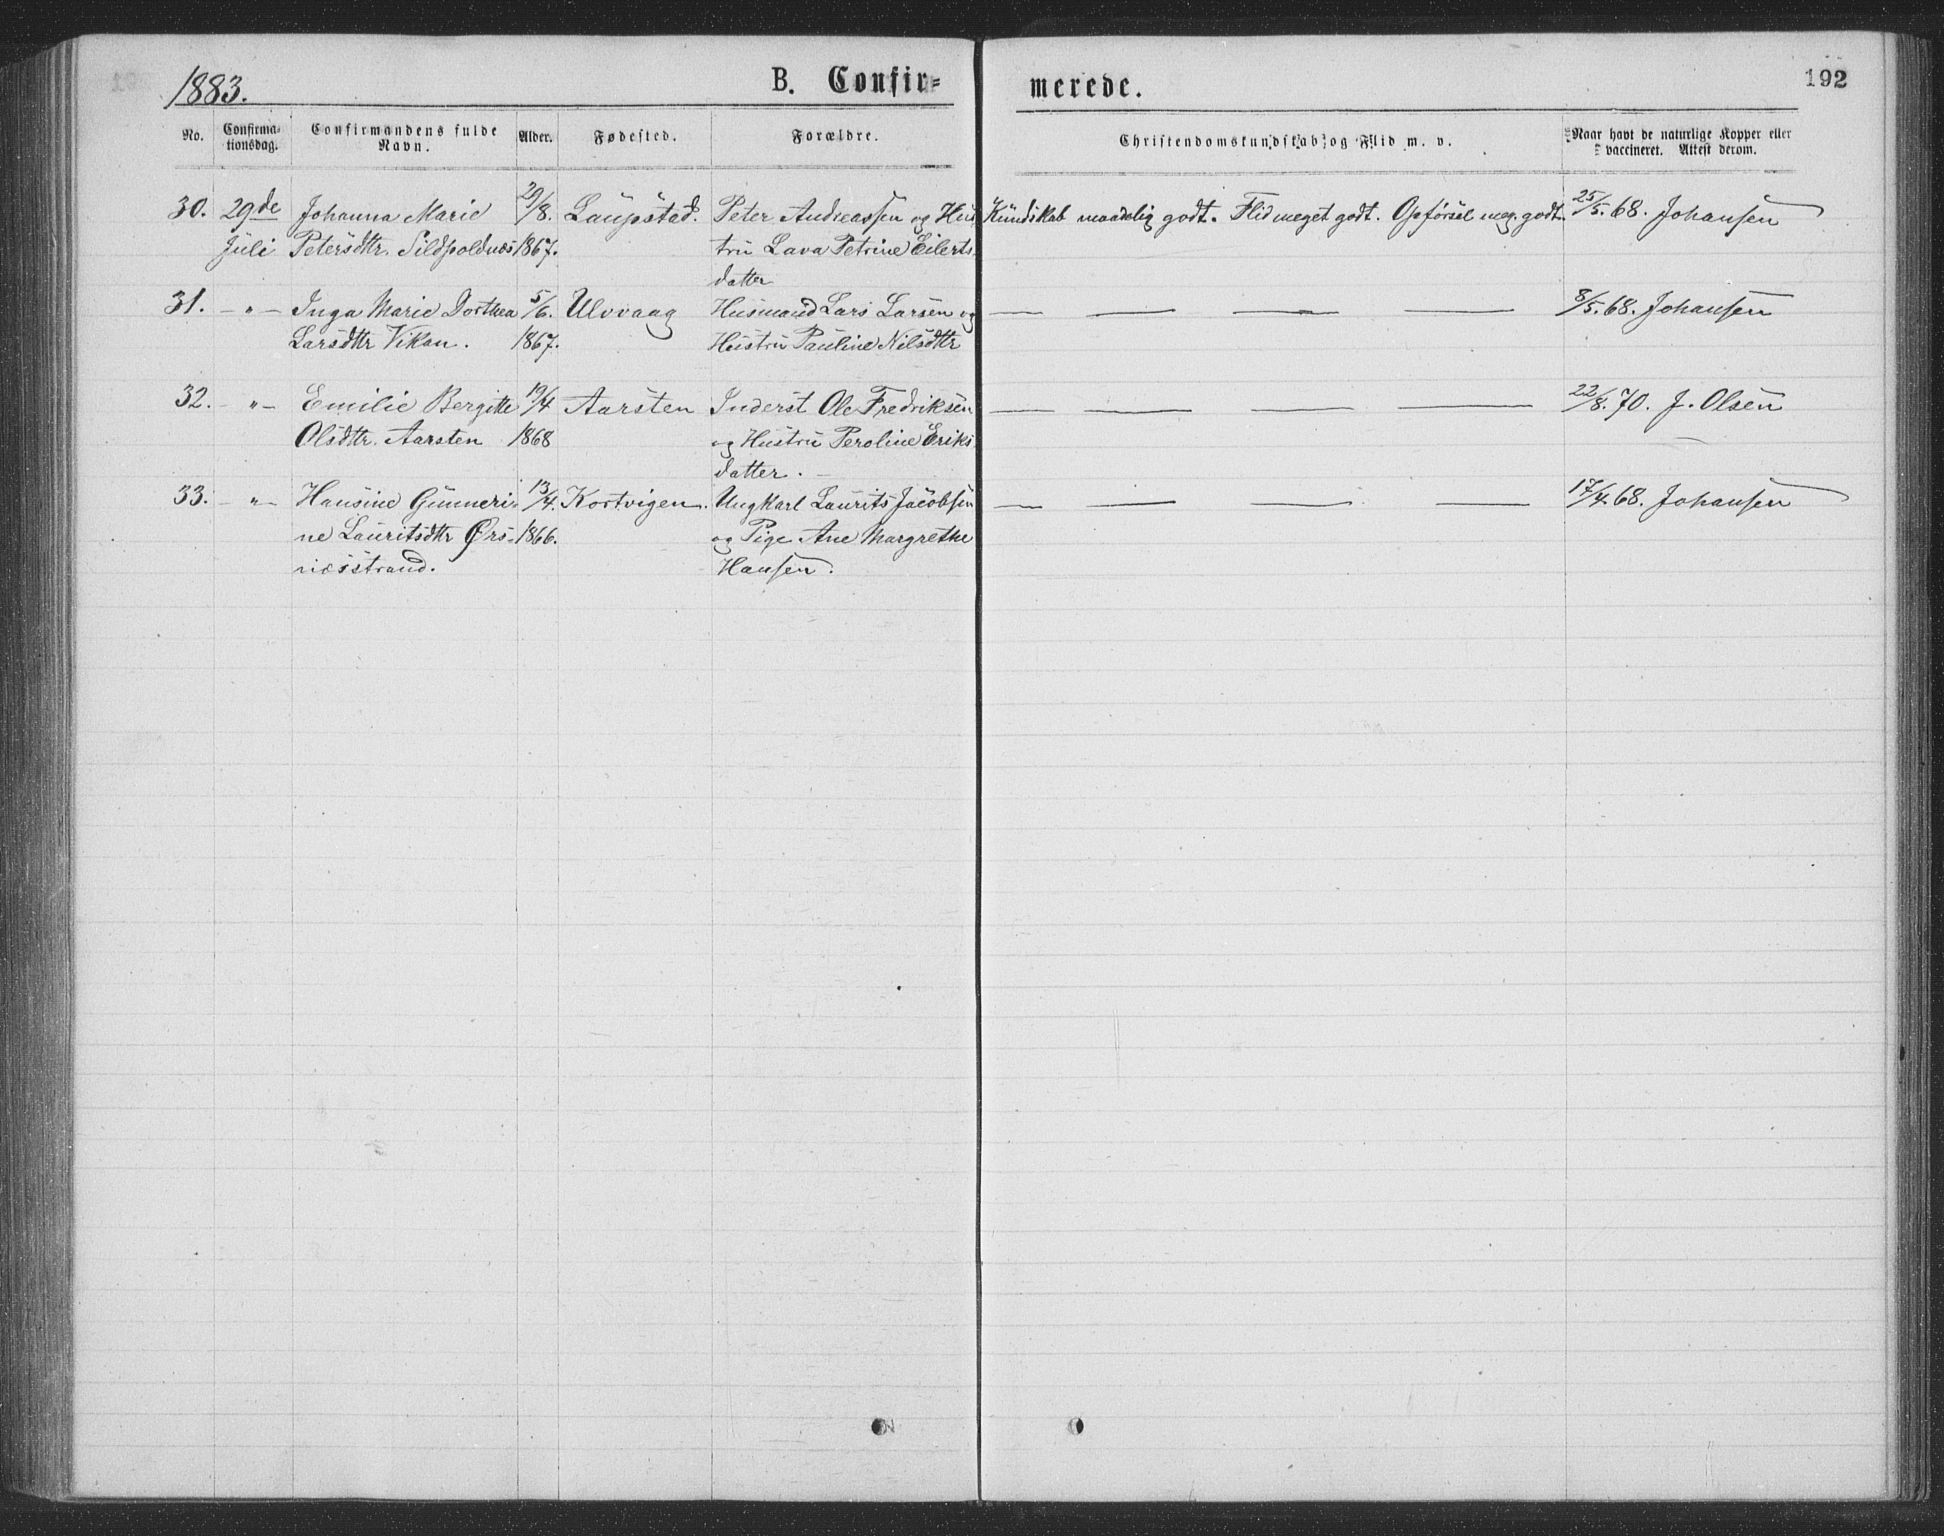 1883.
B. Confir=
merede.
192
No.
Confirma-
tionsdag.
Confirmandens fulde
Navn.
Alder.
Fødested.
Forældre.
Christendomskundskab og Flid m. v.
Naar havt de naturlige Kopper eller
vaccineret. Attest derom.
30. 29de Johanna Marie 29/8. Laupstad. Peter Andreassen og Hus Kundskab maadelig godt. Flid meget godt. Opførsel meg. godt. 25/5. 68. Johansen
Juli Petersdtr. Sildpoldnæs 1867. tru Lava Petrine Eilerts
datter
31. – " – Inga Marie Dorthea 5/6. Ulvvaag Husmand Lars Larsen og — — — — 8/5. 68. Johansen
Larsdtr Vikan. 1867. Hustru Pauline Nilsdtr
32. – " – Emilie Bergitte 19/4 Aarsten Inderst Ole Fredriksen — — — — 22/8. 70. J. Olsen
Olsdtr. Aarsten 1868 og Hustru Peroline Eriks
datter. –
33. – " – Hansine Gunneri- 13/4. Kortvigen. Ungkarl Laurits Jacobsen — — — — 17/4. 68. Johansen
ne Lauritsdtr Ørs- 1866. og Pige Ane Margrethe
næsstrand. Hansen.